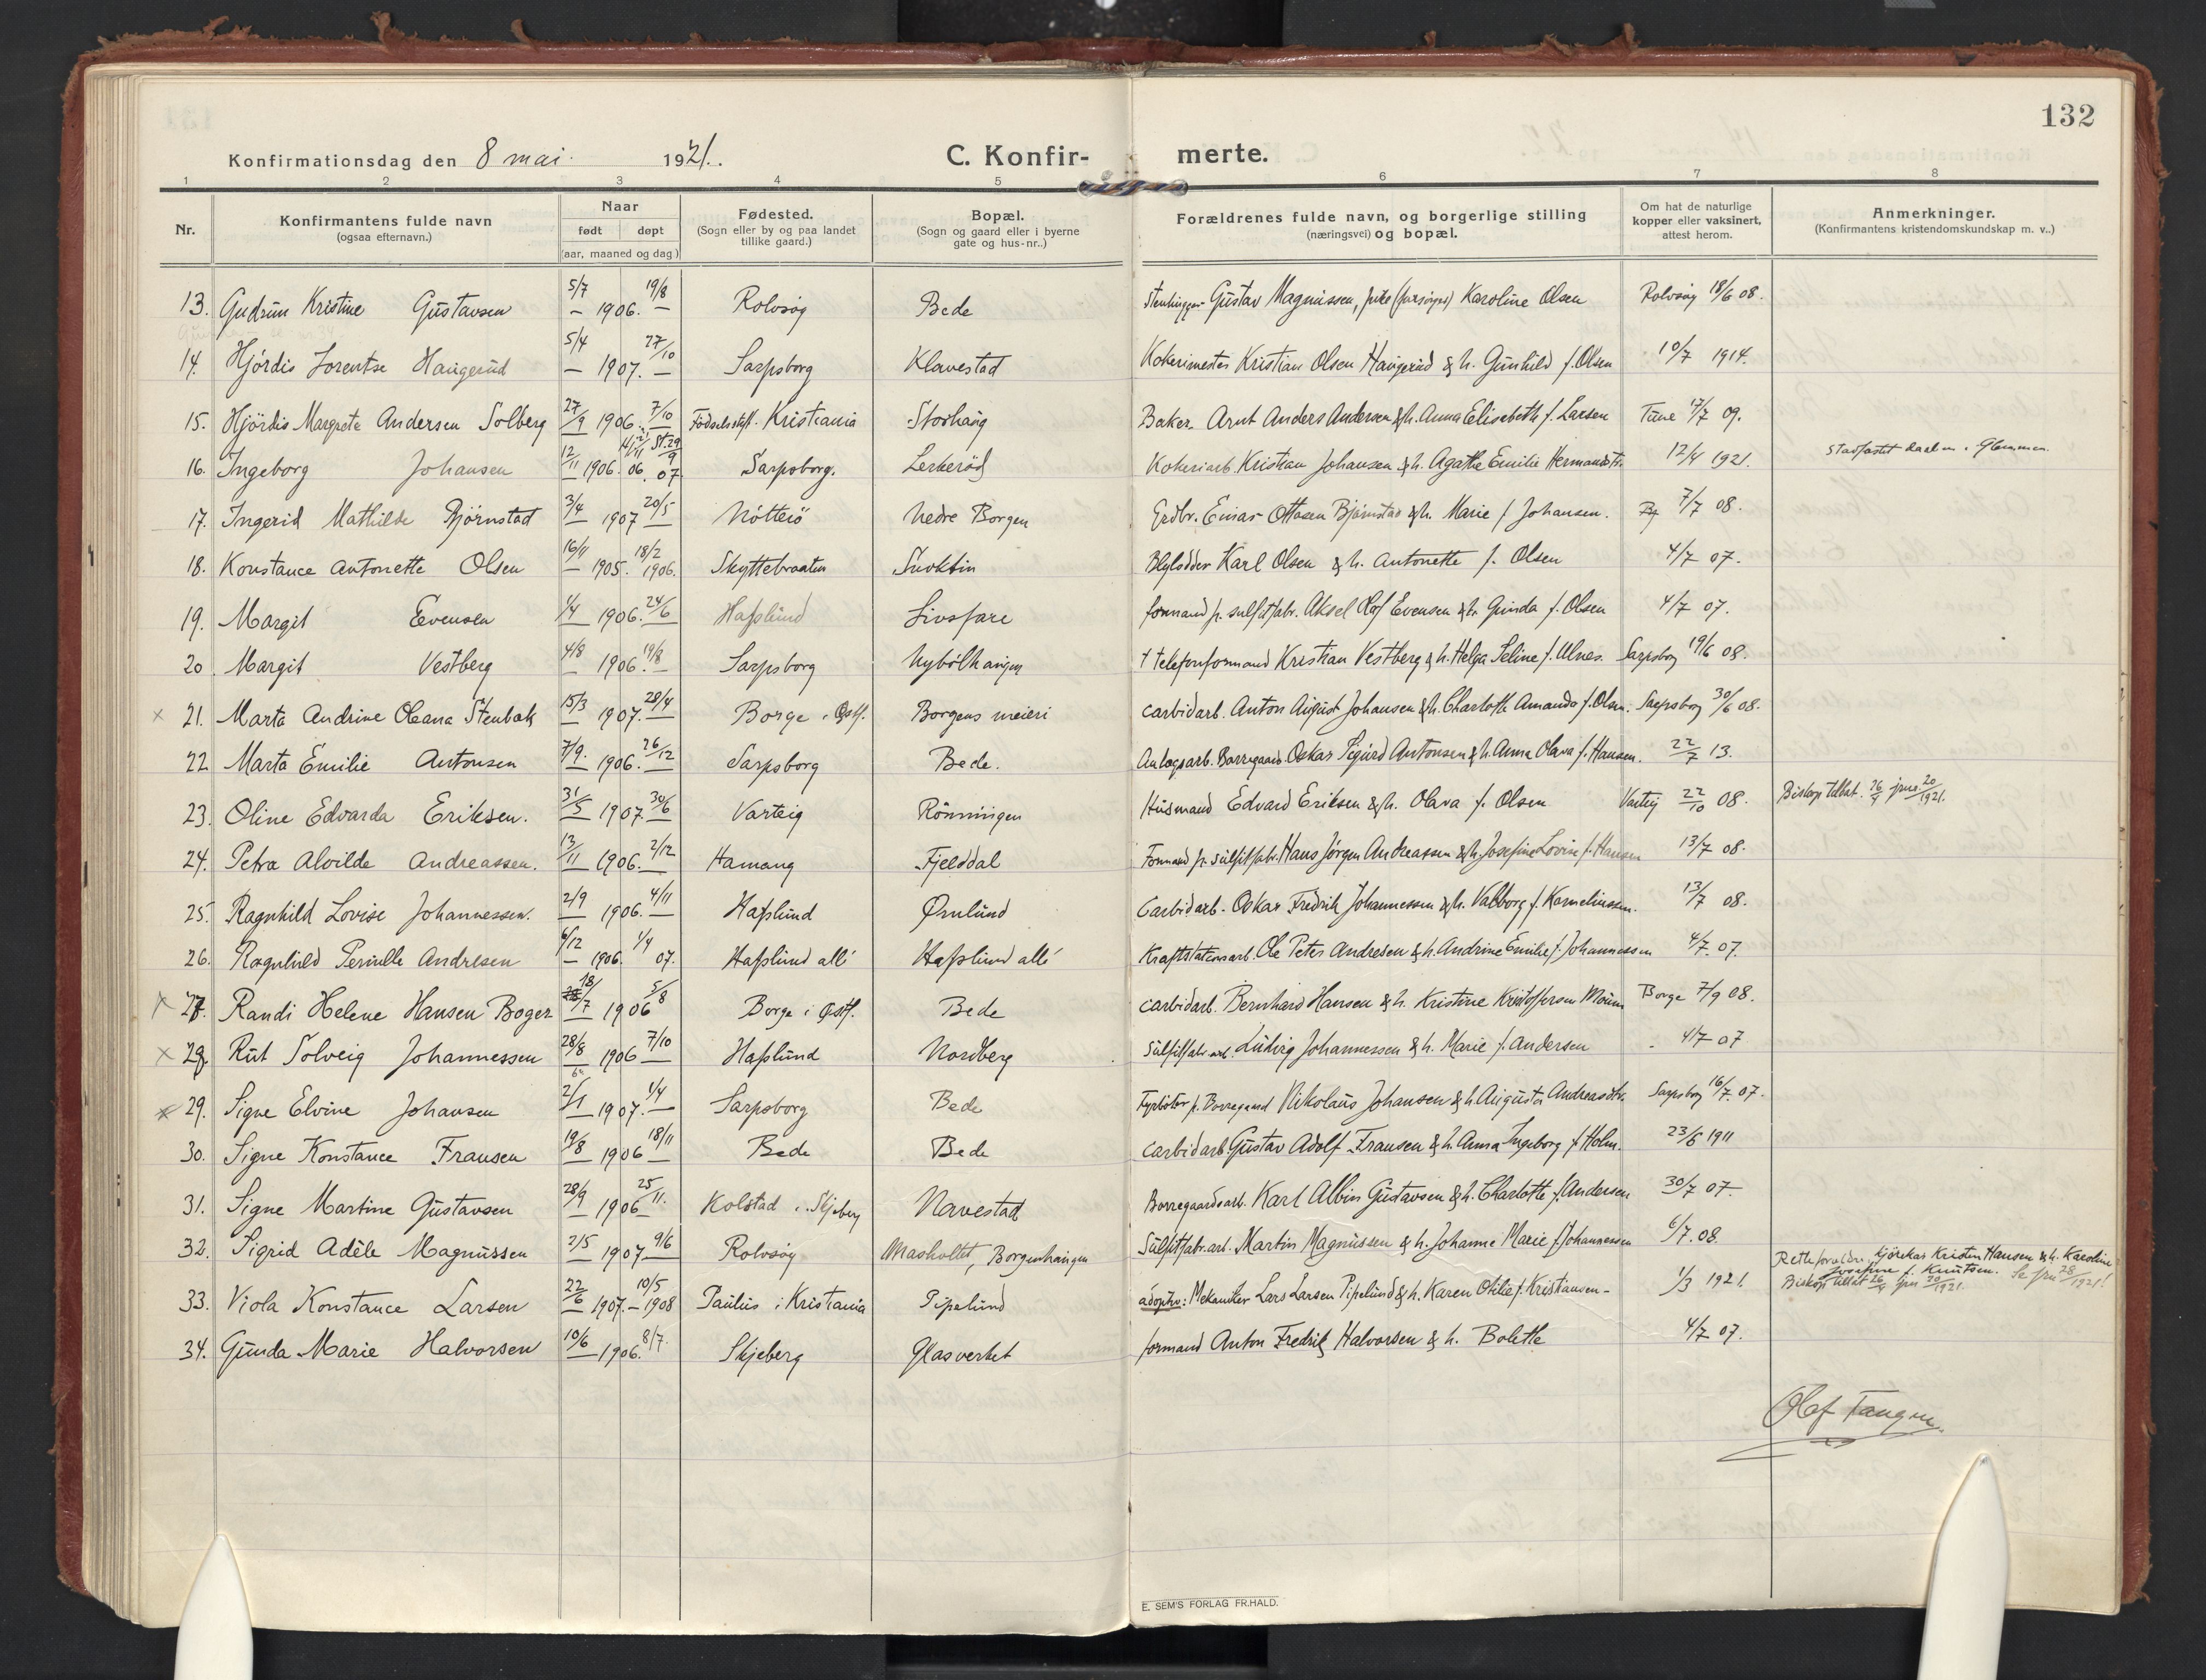 132
Konfirmationsdag den 8 mai. 1921. C. Konfir- merte.
1 2 3 4 5 6 7 8
Nr. Konfirmantens fulde navn (ogsaa efternavn.) Naar født døpt (aar, maaned og dag) Fødested. (Sogn eller by og paa landet tillike gaard.) Bopæl. (Sogn og gaard eller i byerne gate og hus-nr..) Forældrenes fulde navn, og borgerlige stilling (næringsvei) og bopæl. Om hat de naturlige kopper eller vaksinert, attest herom. Anmerkninger. (Konfirmantens kristendomskundskap m. v..)
13. Gudrun Kristine Gustavsen 5/7 1906. 19/8 Rolvsøy Bede Gustav Magnussen, pike Karoline Olsen Rolvsøy 18/6 08.
14. Hjørdis Lorentse Haugerud 5/4 1907. 27/10 Sarpsborg Klavestad Kokerimester Kristian Olsen Haugerud & h. Gunhild f. Olsen 10/7 1914.
15. Hjördis Margrete Andersen Solberg 27/9 1906. 7/10 Födselsstift. Kristiania Storhaug Baker Arnt Anders Andersen & h. Anna Elisebeth f. Larsen Tune 17/7 09.
16. Ingeborg Johansen 12/11 1906. 06. St. 29/9 07. Sarpsborg. Lerkeröd Kokeriarb. Kristian Johansen & h. Agathe Emilie Hermansdtr. 12/4 1921. Stadfæstet daaben i Glemmen.
17. Ingerid Mathilde Bjørnstad 3/4 1907 20/5 Nötterö Nedre Borgen Grdbr. Einar Ottosen Bjørnstad & h. Marie f Johansen. 7/7 08.
18. Konstance Antonette Olsen 16/11 1905. 18/2 1906. Skyttebraaten Snoktin Blylodder Karl Olsen & h. Antonette f. Olsen 4/7 07.
19. Margit Evensen 1/4 1906. 24/6 Hafslund Livsfare formand p. sulfitfabr. Aksel Olof Evensen & h. Gunda f. Olsen 4/7 07.
20. Margit Vestberg 4/8 1906. 19/8 Sarpsborg Nybölhaugen † telefonformand Kristian Vestberg & h. Helga Seline f. Ulnes. Sarpsborg 19/6 08.
× 21. Marta Andrine Oleana Stenbæk 15/3 1907. 28/4 Borge i Østf. Borgens meieri carbidarb. Anton August Johansen & h. Charlotte Amanda f. Olsen. Sarpsborg 30/6 08.
22 Marta Emilie Antonsen 7/9. 1906. 26/12 Sarpsborg Bede. Anlægsarb. Borregaard Oskar Sigurd Antonsen & h. Anna Olava f. Hansen. 22/7 13.
23. Oline Edvarda Eriksen. 31/5 1907. 30/6 Varteig Rönningen Husmand Edvard Eriksen & h. Olava f. Olsen Varteig 22/10 08. Biskop tillat. 26/4 jnr 20/1921.
24. Petra Alvilde Andreassen. 13/11 1906. 2/12 Hamang Fjelddal Formand p. sulfitfabr. Hans Jørgen Andreassen & h. Josefine Lovise f. Hansen 13/7 08.
25. Ragnhild Lovise Johannessen. 2/9 1906. 4/11 Hafslund Ørnlund Carbidarb. Oskar Fredrik Johannessen & h. Valborg f. Korneliussen. 13/7 08.
26. Ragnhild Pernille Andresen 6/12 1906. 1/4 07. Hafslund allé Hafslund allé Kraftstationsarb. Ole Peter Andresen & h. Andrine Emilie f. Johannessen 4/7 07.
× 27. Randi Helene Hansen Boger 18/7 1906 5/8 Borge i Østf. Bede carbidarb. Bernhard Hansen & h. Kristine Kristoffersen Moum Borge 7/9 08.
× 28 Rut Solveig Johannessen 28/8 1906 7/10 Hafslund Nordberg Sulfitfabr. arb. Ludvig Johannessen & h. Marie f. Andersen 4/7 07
× 29. Signe Elvine Johansen 2/1 1907. 1/4 Sarpsborg Bede Fyrböter p. Borregaard Nikolaus Johansen & h. Augusta Andreasdtr. Sarpsborg 16/7. 07.
30. Signe Konstance Fransen 19/8 1906 18/11 Bede Bede carbidarb. Gustav Adolf Fransen & h. Anna Ingeborg f Holm. 23/6 1911
31. Signe Martine Gustavsen 28/9 1906 25/11. Kolstad i Skjeberg Navestad Borregaardsarb. Karl Albin Gustavsen & h. Charlotte f. Andersen 30/7 07.
32. Sigrid Adèle Magnussen 2/5 1907. 9/6 Rolvsøy Masholtet, Borgenhaugen Sulfitfabr. arb. Martin Magnussen & h. Johanne Marie f Johannessen 6/7. 08.
33. Viola Konstance Larsen 22/6 1907. 10/5 1908 Paulus i Kristiania Pipelund adoptiv: Mekaniker Lars Larsen Pipelund & h. Karen Otilie f. Kristiansen 1/3 1921. Rette foreldre: kjörekar Kristen Hansen & h. Karoline Josefine f. Knutsen. Se jnr 28/1921! Biskop tillat 26/4 jnr 20/1921.
34. Gunda Marie Halvorsen 10/6 1906. 8/7. Skjeberg Glasverket formand Anton Fredrik Halvorsen & h. Bolette 4/7 07.
Olaf Tangen.
E. SEM'S FORLAG FR.HALD.